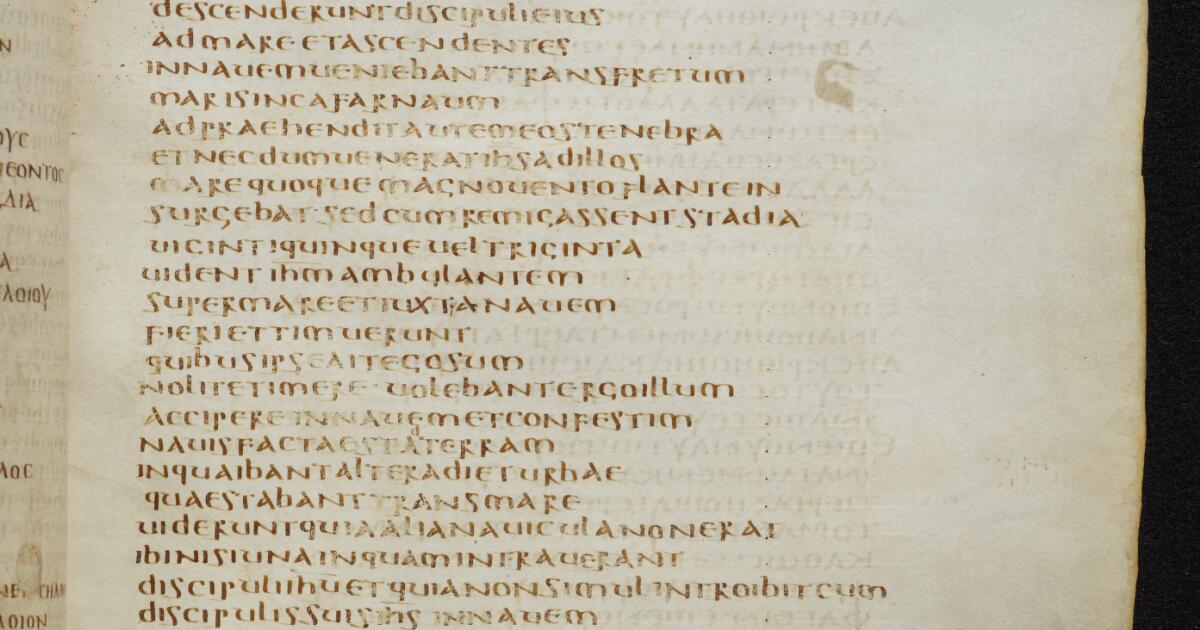 descenderuntdiscipulieius
admare·etascendentes
innauemueniebanttransfretum
marisincafarnaum
adpraehenditautemeostenebra
etnecdumueneratihsadillos
marequoquemagnouentoflantein
surgebat·sedcumremigassentstadia
uigintiquinqueueltriginta
uidentihmambulantem
supermareetiuxtanauem
fieriettimuerunt
quibusipseaitegosum
nolitetimere·uolebantergoillum
aeciperëinnauemetconfestim
nauisfactaestaterram
inquaibantalteradieturbae
quaestabanttransmare
uideruntquiaalianauiculanonerat
ibinisiunainquamintrauerant
discipuliihuetquianonsimulintroibitcum
discipulissuisihsinnauem
ΟΥϹ
ΔΙΑ
ΛΟΙΟΥ
ΛΟϹ
ΛΟΙΟΝ